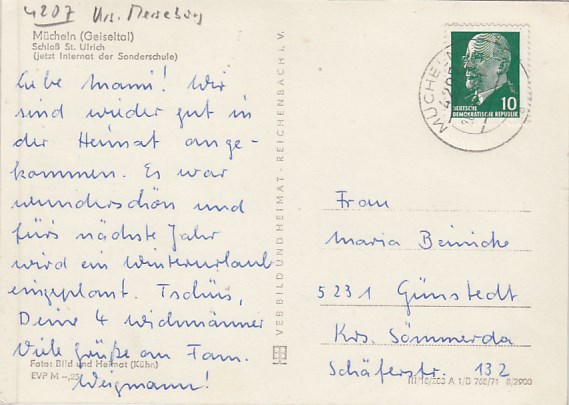 4207 Krs. Merseburg
Mücheln (Geiseltal)
Schloß St. Ulrich
(jetzt Internat der Sonderschule)
Liebe Mami! Wir
sind wieder gut in
der Heimat ange-
kommen. Es war
wunderschön und
fürs nächste Jahr
wird ein Winterurlaub
eingeplant. Tschüs,
Deine 4 Wichmänner
Viele Grüße an Fam.
Weigmann!
Foto: Bild und Heimat (Kühn)
EVP M –,25
VEB BILD UND HEIMAT - REICHENBACH I. V.
MÜCHELN
DEUTSCHE
DEMOKRATISCHE REPUBLIK
10
Frau
Maria Beinicke
5231 Günstedt
Krs. Sömmerda
Schäferstr. 132
A 1/B 768/71